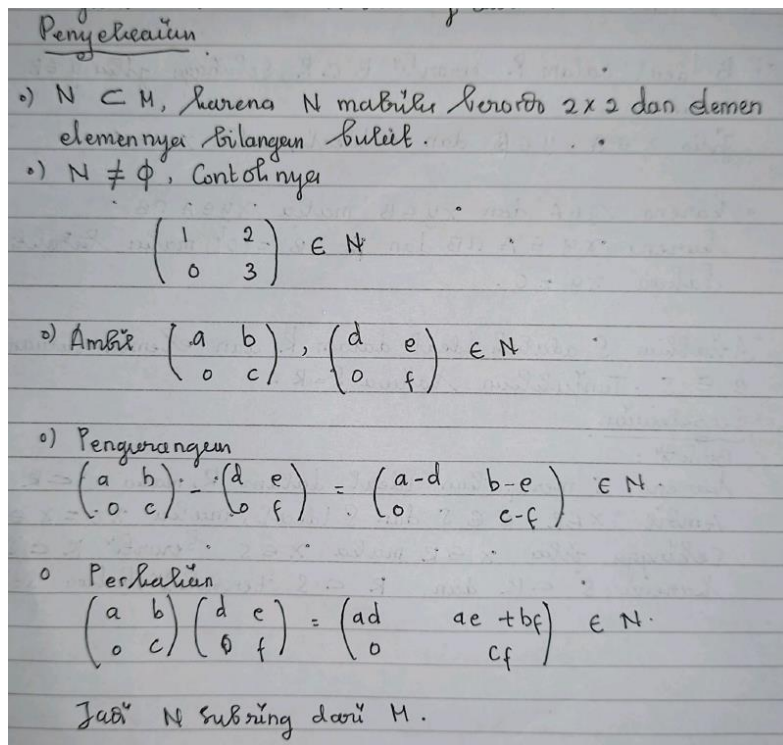 Penyelesaian
•) N ⊂ M, karena N matriks berordo 2 x 2 dan elemen
elemennya bilangan bulat.
•) N ≠ ϕ, Contohnya
( 1 2 ; 0 3 ) ∈ N
•) Ambil ( a b ; 0 c ), ( d e ; 0 f ) ∈ N
•) Pengurangan
( a b ; 0 c ) - ( d e ; 0 f ) = ( a-d b-e ; 0 c-f ) ∈ N.
• Perkalian
( a b ; 0 c ) ( d e ; 0 f ) = ( ad ae + bf ; 0 cf ) ∈ N.
Jadi N subring dari M.